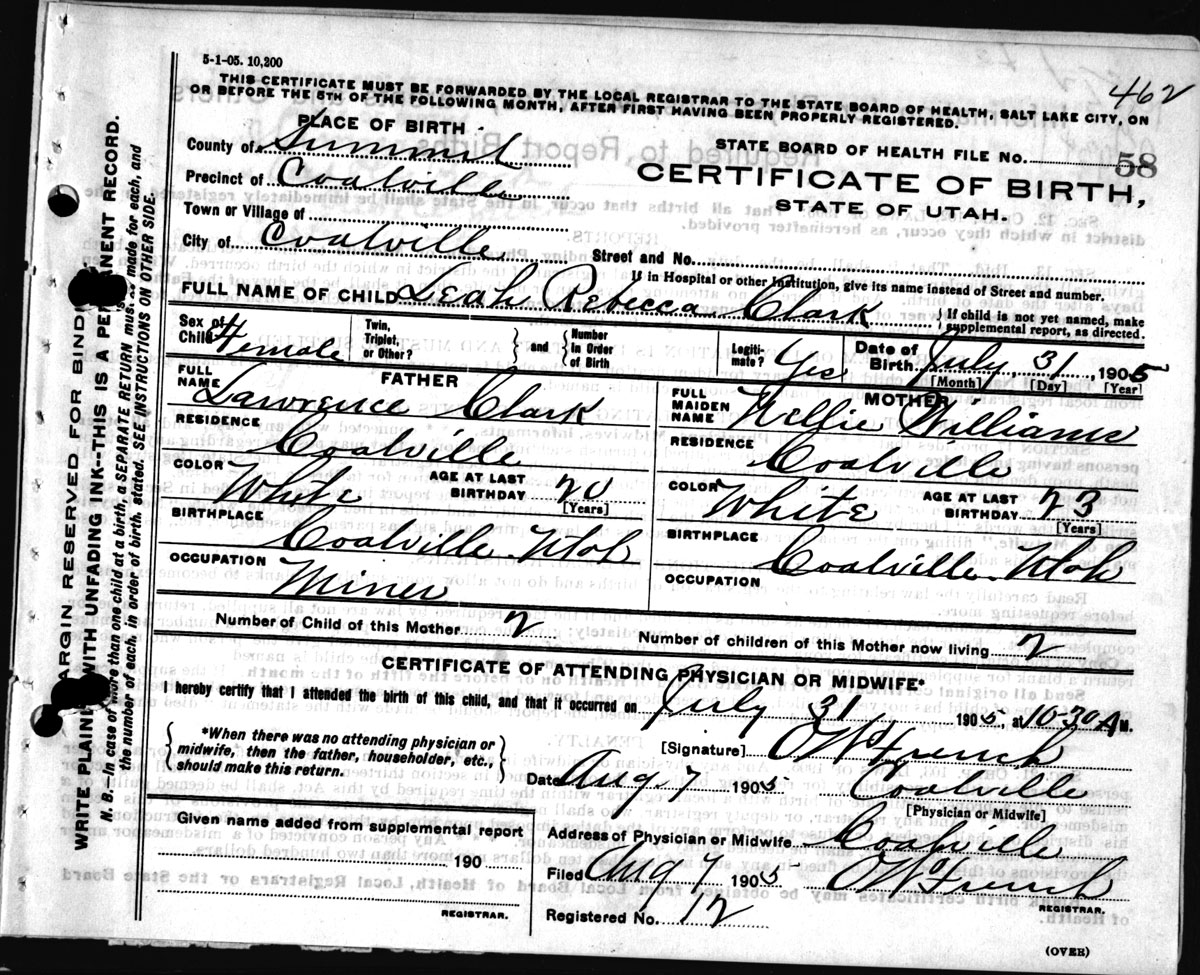 5-1-05. 10,200
462
THIS CERTIFICATE MUST BE FORWARDED BY THE LOCAL REGISTRAR TO THE STATE BOARD OF HEALTH, SALT LAKE CITY, ON
OR BEFORE THE 5TH OF THE FOLLOWING MONTH, AFTER FIRST HAVING BEEN PROPERLY REGISTERED.
PLACE OF BIRTH
County of Summit
Precinct of Coalville
Town or Village of
City of Coalville
STATE BOARD OF HEALTH FILE No. 58
CERTIFICATE OF BIRTH,
STATE OF UTAH.
Street and No.
If in Hospital or other Institution, give its name instead of Street and number.
FULL NAME OF CHILD Leah Rebecca Clark
If child is not yet named, make
supplemental report, as directed.
Sex of Child Female
Twin, Triplet, or Other?
and
Number In Order of Birth
Legitimate? Yes
Date of Birth July 31, 1905
[Month] [Day] [Year]
FATHER
FULL NAME Lawrence Clark
RESIDENCE Coalville
COLOR White AGE AT LAST BIRTHDAY 20
[Years]
BIRTHPLACE Coalville Utah
OCCUPATION Miner
MOTHER
FULL MAIDEN NAME Nellie Williams
RESIDENCE Coalville
COLOR White AGE AT LAST BIRTHDAY 23
[Years]
BIRTHPLACE Coalville Utah
OCCUPATION
Number of Child of this Mother 2
Number of children of this Mother now living 2
CERTIFICATE OF ATTENDING PHYSICIAN OR MIDWIFE*
I hereby certify that I attended the birth of this child, and that it occurred on July 31 1905, at 10-30 A M.
*When there was no attending physician or
midwife, then the father, householder, etc.,
should make this return.
[Signature] French
Date Aug 7 1905 Coalville
[Physician or Midwife]
Given name added from supplemental report
190
REGISTRAR.
Address of Physician or Midwife Coalville
Filed Aug 7 1905 French
REGISTRAR.
Registered No. 12
(OVER)
MARGIN RESERVED FOR BINDING
WRITE PLAINLY WITH UNFADING INK--THIS IS A PERMANENT RECORD.
N. B.--In case of more than one child at a birth, a SEPARATE RETURN must be made for each, and
the number of each, in order of birth, stated. SEE INSTRUCTIONS ON OTHER SIDE.